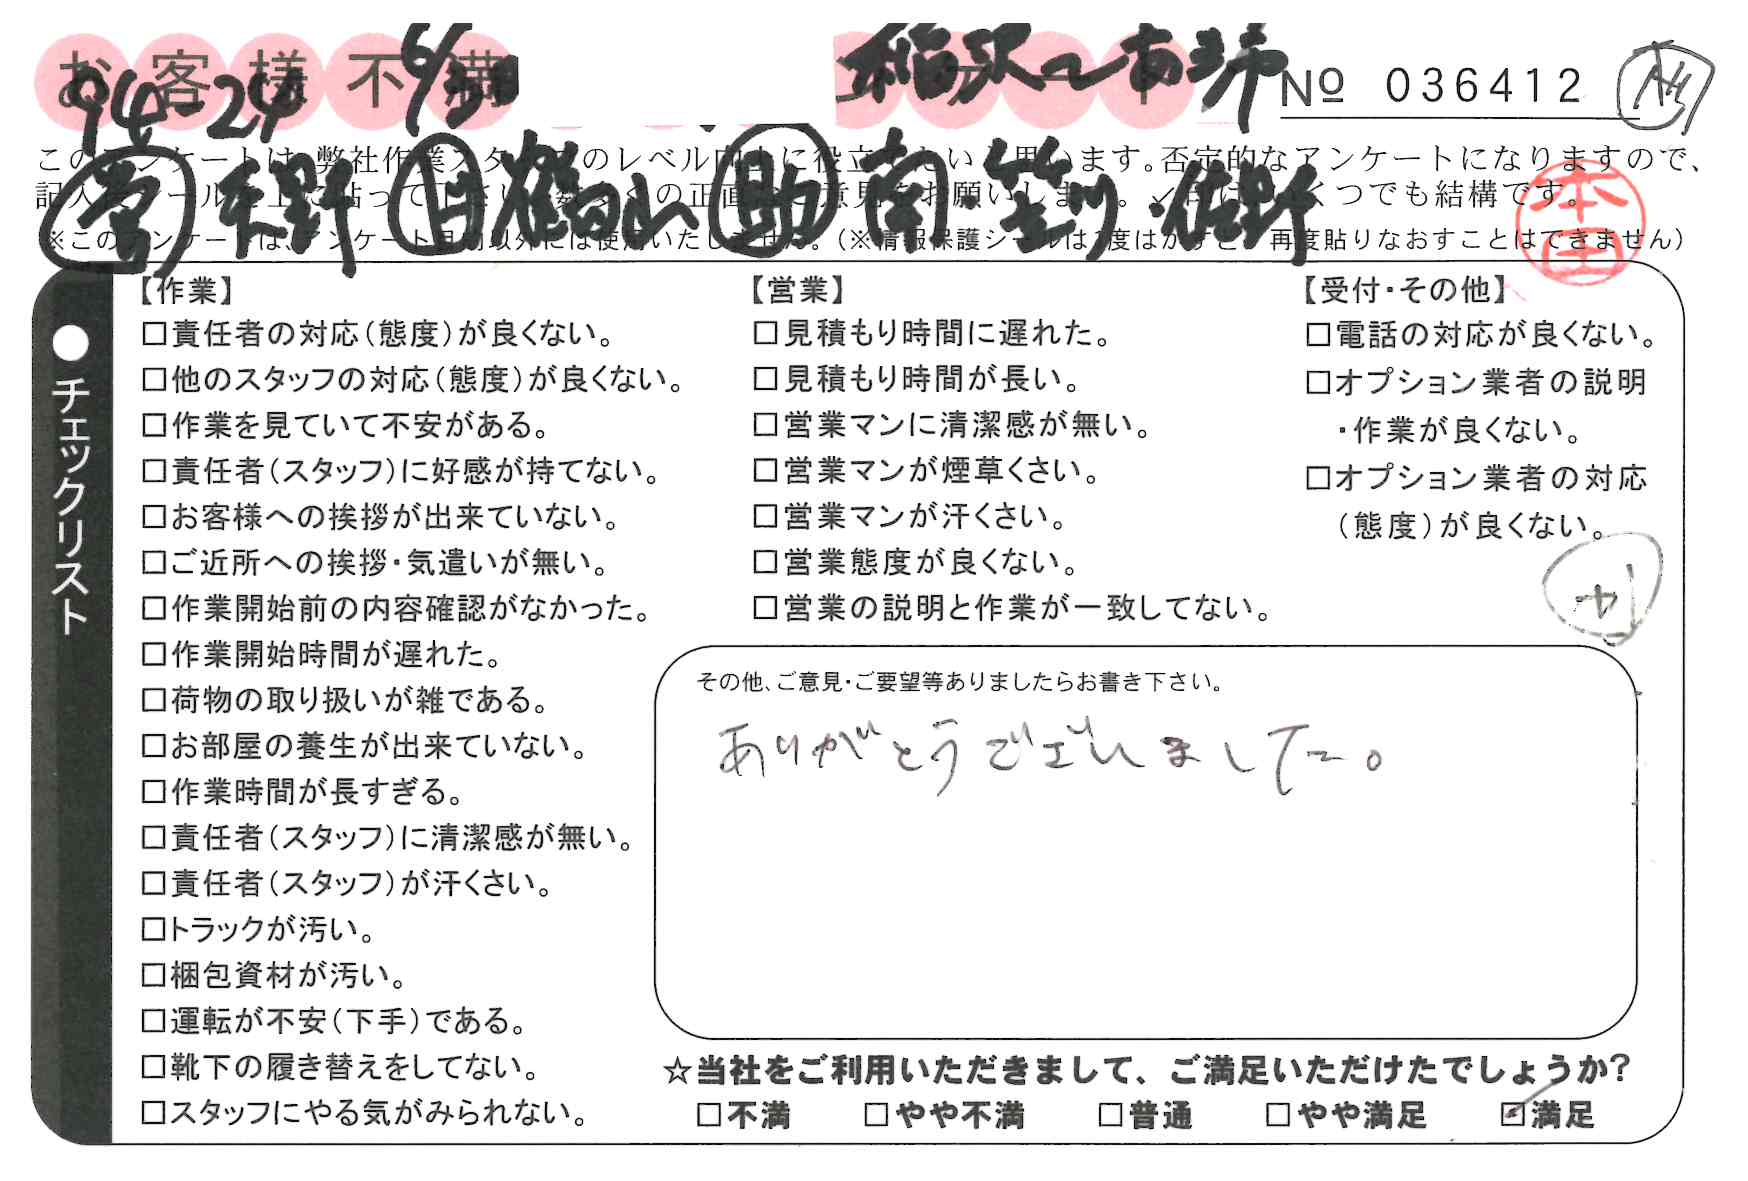 お客様不満
94-24 6/30 稲沢〜あま市
№ 036412
このアンケートは、弊社作業スタッフのレベル向上に役立てたいと思います。否定的なアンケートになりますので、
記入後シールを上に貼って下さい。数多くの正直なご意見をお願いします。✓印はいくつでも結構です。
※このアンケートは、アンケート目的以外には使用いたしません。(※情報保護シールは1度はがすと、再度貼りなおすことはできません)
営 天野 自 鶴山 助 南・笠川・佐野
本田
●チェックリスト
【作業】
□責任者の対応(態度)が良くない。
□他のスタッフの対応(態度)が良くない。
□作業を見ていて不安がある。
□責任者(スタッフ)に好感が持てない。
□お客様への挨拶が出来ていない。
□ご近所への挨拶・気遣いが無い。
□作業開始前の内容確認がなかった。
□作業開始時間が遅れた。
□荷物の取り扱いが雑である。
□お部屋の養生が出来ていない。
□作業時間が長すぎる。
□責任者(スタッフ)に清潔感が無い。
□責任者(スタッフ)が汗くさい。
□トラックが汚い。
□梱包資材が汚い。
□運転が不安(下手)である。
□靴下の履き替えをしてない。
□スタッフにやる気がみられない。
【営業】
□見積もり時間に遅れた。
□見積もり時間が長い。
□営業マンに清潔感が無い。
□営業マンが煙草くさい。
□営業マンが汗くさい。
□営業態度が良くない。
□営業の説明と作業が一致してない。
【受付・その他】
□電話の対応が良くない。
□オプション業者の説明
・作業が良くない。
□オプション業者の対応
(態度)が良くない。
その他、ご意見・ご要望等ありましたらお書き下さい。
ありがとうございました。
☆当社をご利用いただきまして、ご満足いただけたでしょうか?
□不満 □やや不満 □普通 □やや満足 ☑満足